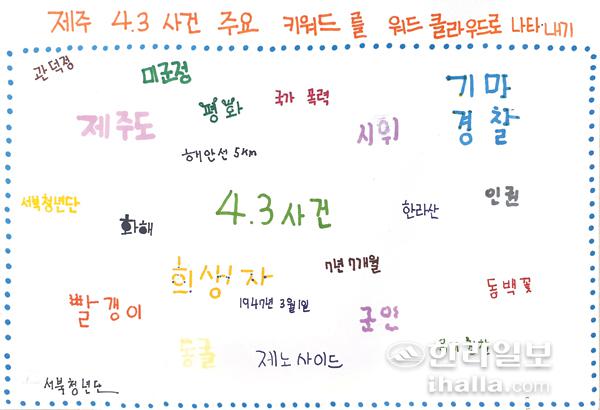 제주 4.3 사건 주요 키워드를 워드 클라우드로 나타내기
관덕정
미군정
기마
경찰
평화
국가 폭력
제주도
시위
해안선 5km
서북청년단
화해
4.3사건
한라산
인권
희생자
7년 7개월
동백꽃
빨갱이
1947년 3월 1일
군인
동굴
제노사이드
서북청년단
한라일보
ihalla.com